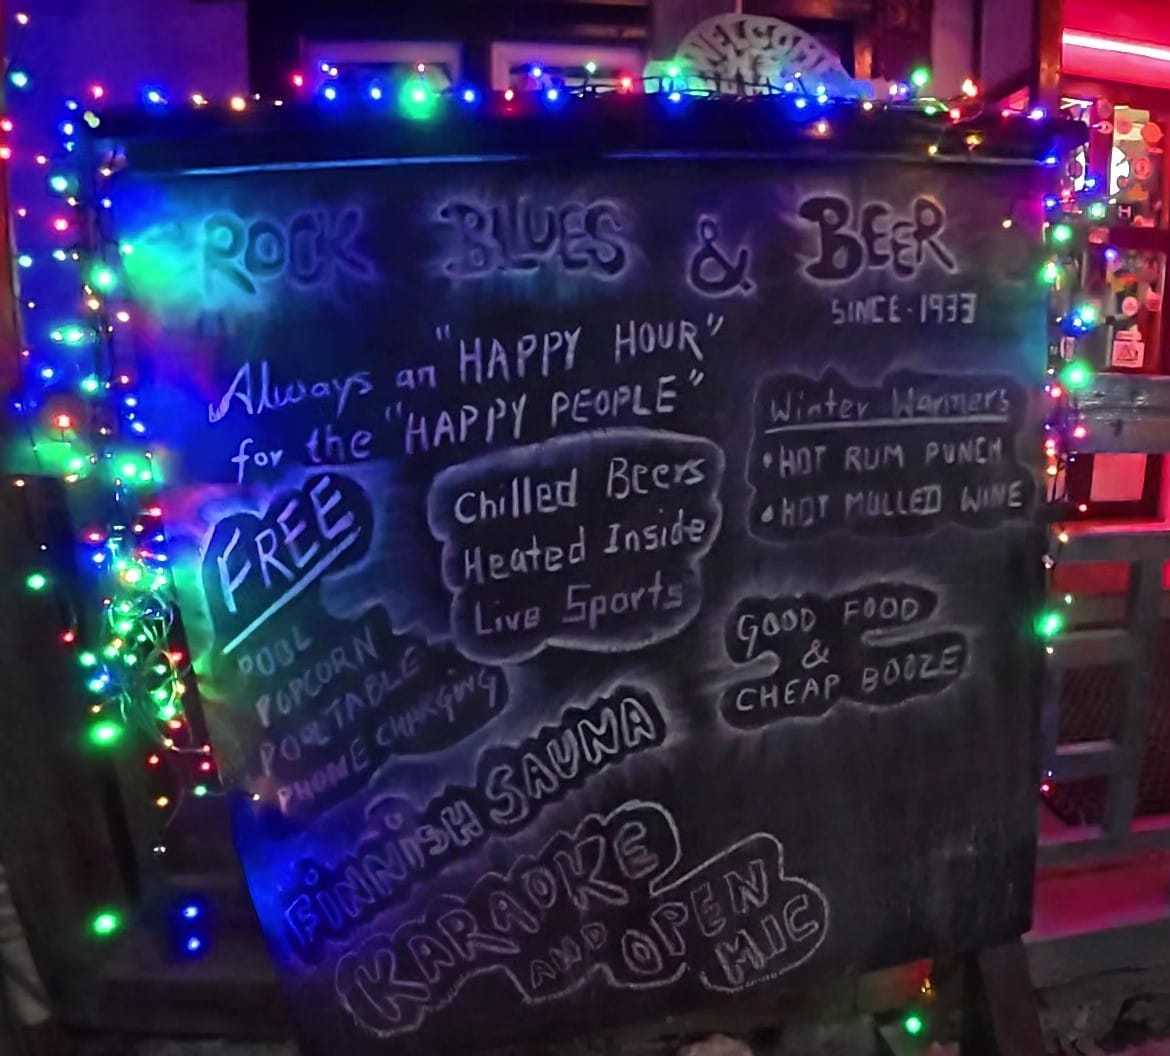 WELCOME
ROCK BLUES & BEER
SINCE · 1933
Always an "HAPPY HOUR"
for the "HAPPY PEOPLE"
Winter Warmers
• HOT RUM PUNCH
• HOT MULLED WINE
Chilled Beers
Heated Inside
Live Sports
FREE
POOL
POPCORN
POOL TABLE
PHONE CHARGING
GOOD FOOD
&
CHEAP BOOZE
FINNISH SAUNA
KARAOKE
AND OPEN
MIC